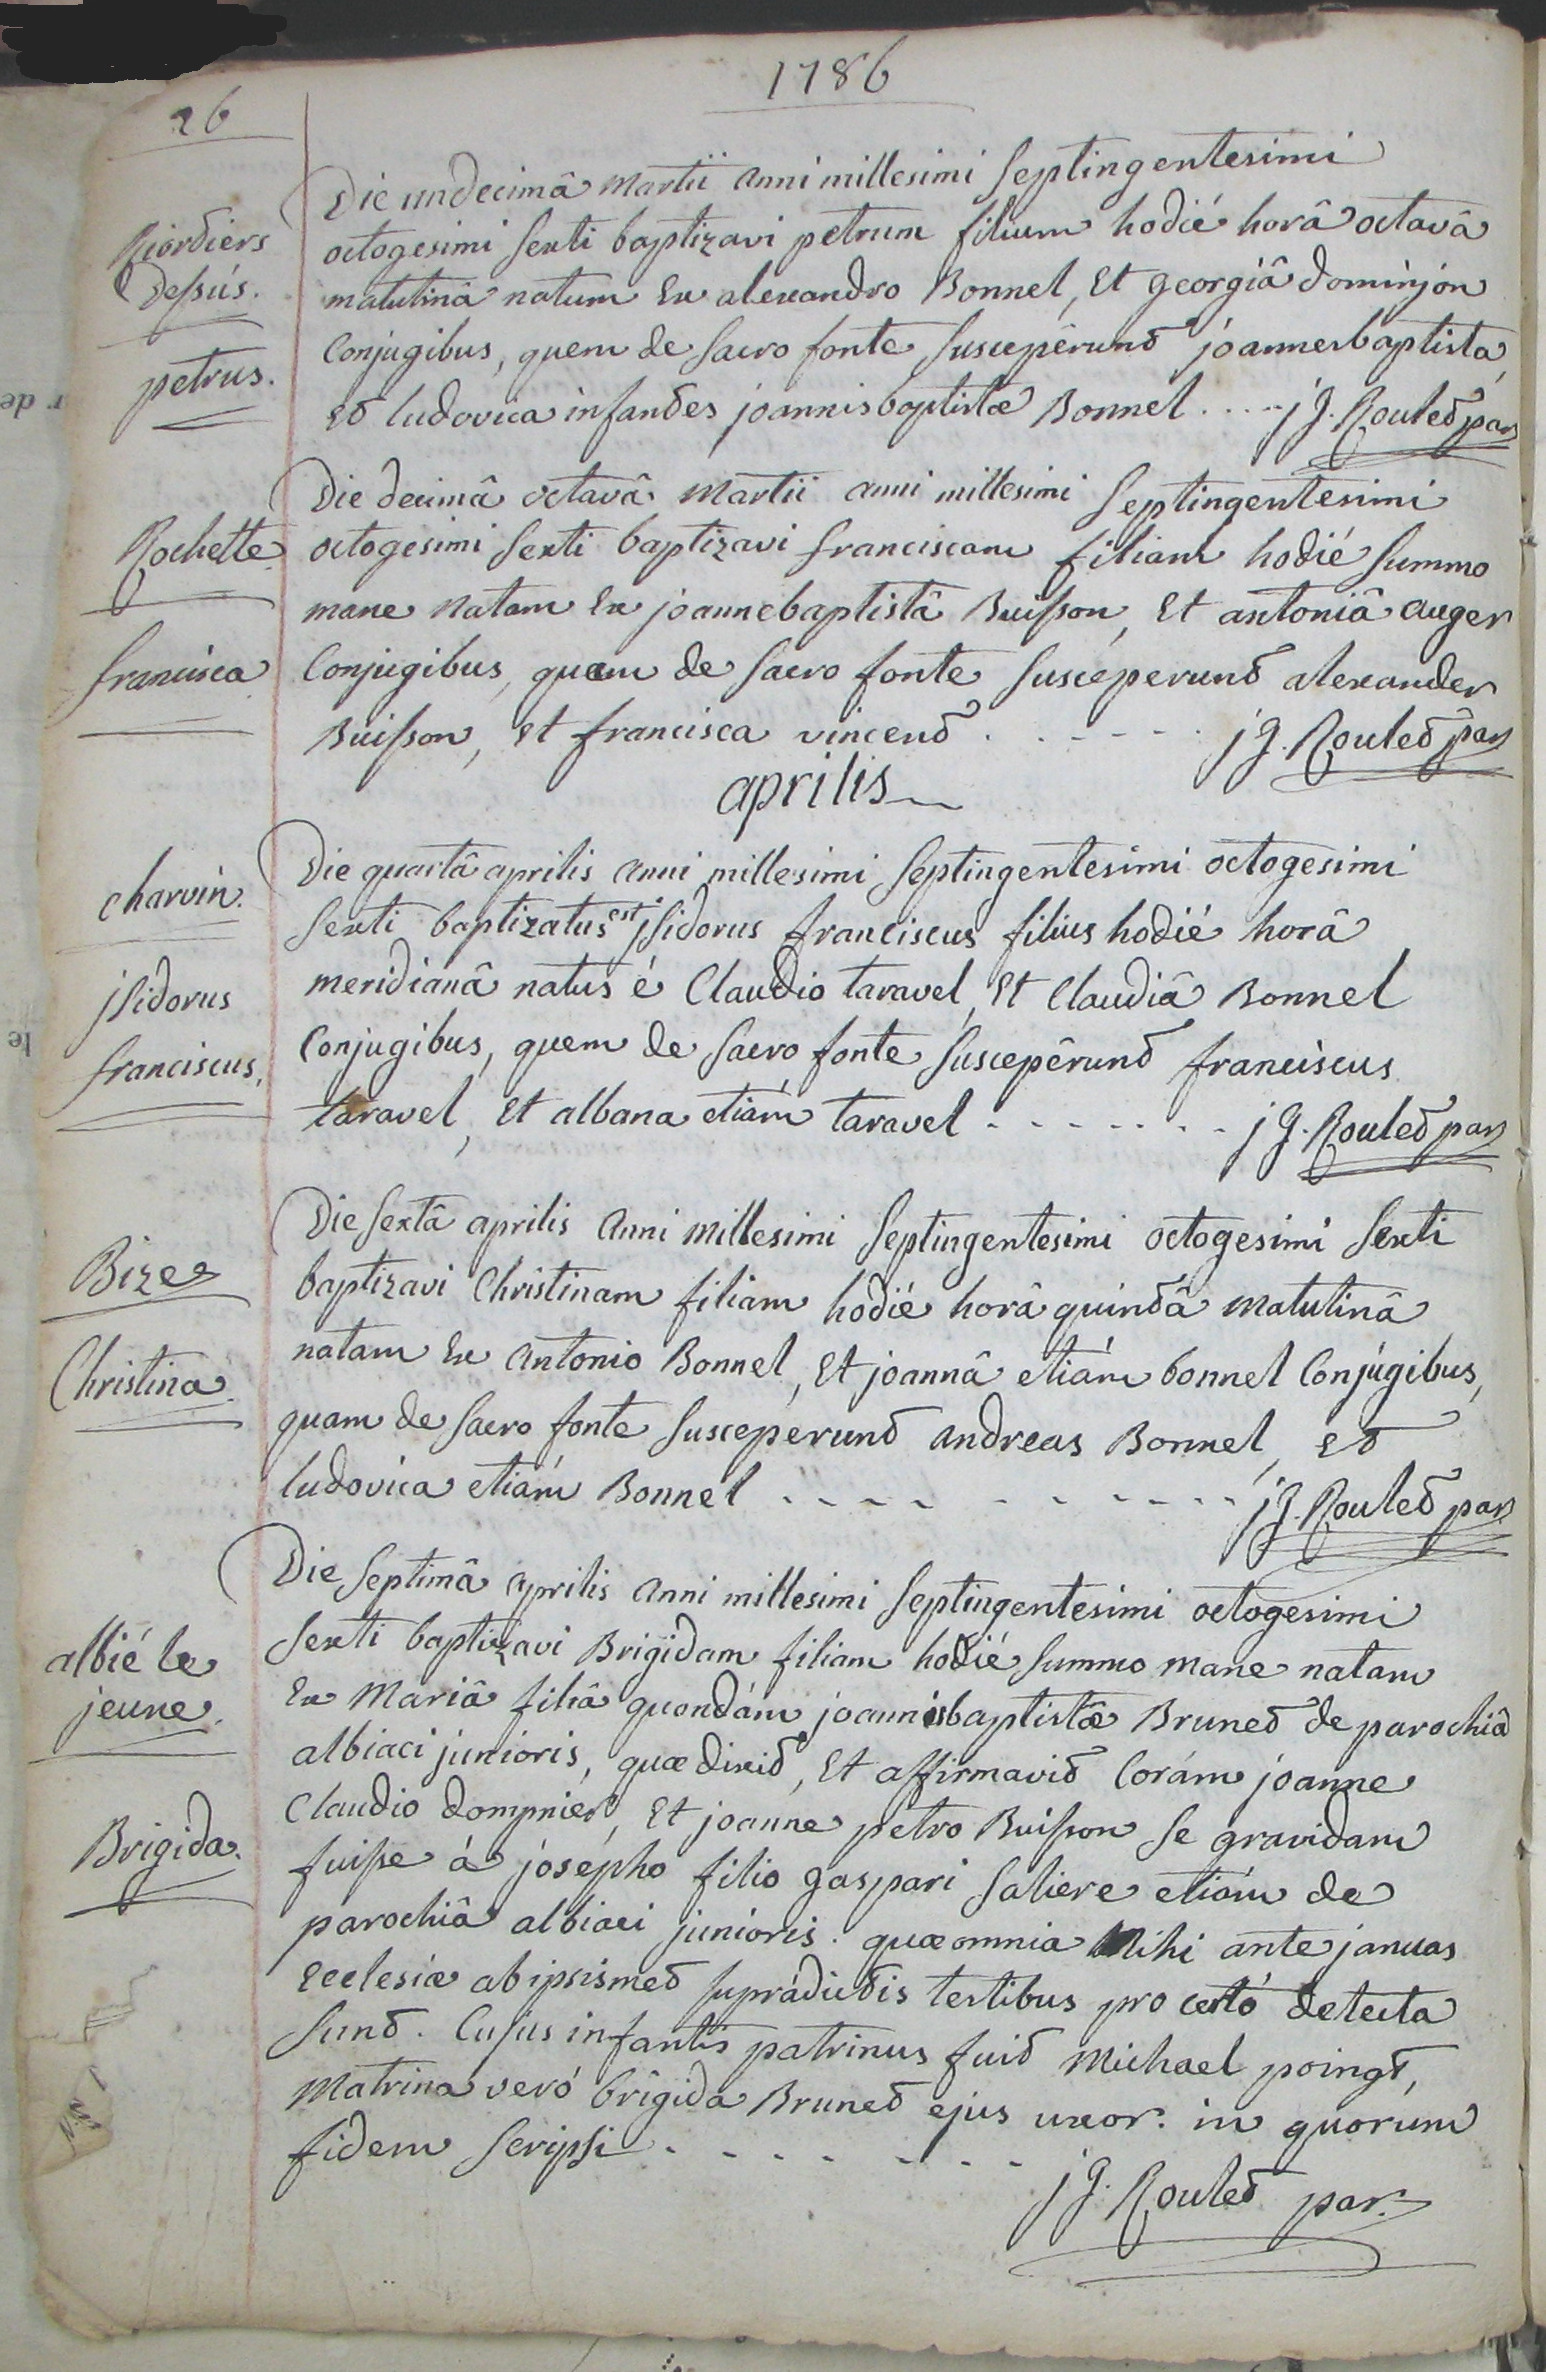 1786
26
Die undecimâ martii anni millesimi septingentesimi
octogesimi sexti baptizavi petrum filium hodié horâ octavâ
matutinâ natum Ex alexandro Bonnel, Et georgiâ dominjon
Conjugibus, quem de sacro fonte suscepêrunt joannesbaptista,
Et ludovica infantes joannisbaptistæ Bonnel.... j g. Roulet par
dessús.
petrus.
Die decimâ octavâ martii anni millesimi septingentesimi
octogesimi sexti baptizavi franciscam filiam hodié summo
mane natam Ex joannebaptistâ Buisson, Et antoniâ auger
Conjugibus, quam de sacro fonte susceperunt alexander
Buisson, Et francisca vincent . . - - - . j g. Roulet par
Rochette
francisca
aprilis
Die quartâ aprilis anni millesimi septingentesimi octogesimi
sexti baptizatus est jsidorus franciscus filius hodié horâ
meridianâ natus é Claudio taravel, Et Claudiâ Bonnel
Conjugibus, quem de sacro fonte suscepêrunt franciscus
taravel, Et albana etiám taravel - - - - - - - j g. Roulet par
charvin.
jsidorus
franciscus,
Die sextâ aprilis anni millesimi septingentesimi octogesimi sexti
baptizavi Christinam filiam hodié horâ quintâ matutinâ
natam Ex antonio Bonnel, Et joannâ etiám bonnel Conjugibus,
quam de sacro fonte susceperunt andreas Bonnel, Et
ludovica etiám Bonnel - - - - - - - - - j g. Roulet par
Bizet
Christina.
Die septimâ aprilis anni millesimi septingentesimi octogesimi
sexti baptizavi Brigidam filiam hodié summo mane natam
Ex Mariâ filiâ quondám joannisbaptistæ Brunet de parochiâ
albiaci junioris, quæ dixit, Et affirmavit Corám joanne
Claudio dompnier, Et joanne petro Buisson se gravidam
fuisse á josépho filio gaspari saliere etiám de
parochiâ albiaci junioris. quæ omnia Mihi ante januas
Ecclesiæ ab ipsismet suprádictis testibus pro certó detecta
sunt. Cujus infantis patrinus fuit Michael poingt,
Matrina veró brigida Brunet ejus uxor. in quorum
fidem scripsi - - - - - - -
j g. Roulet par.
albié le
jeune.
Brigida.